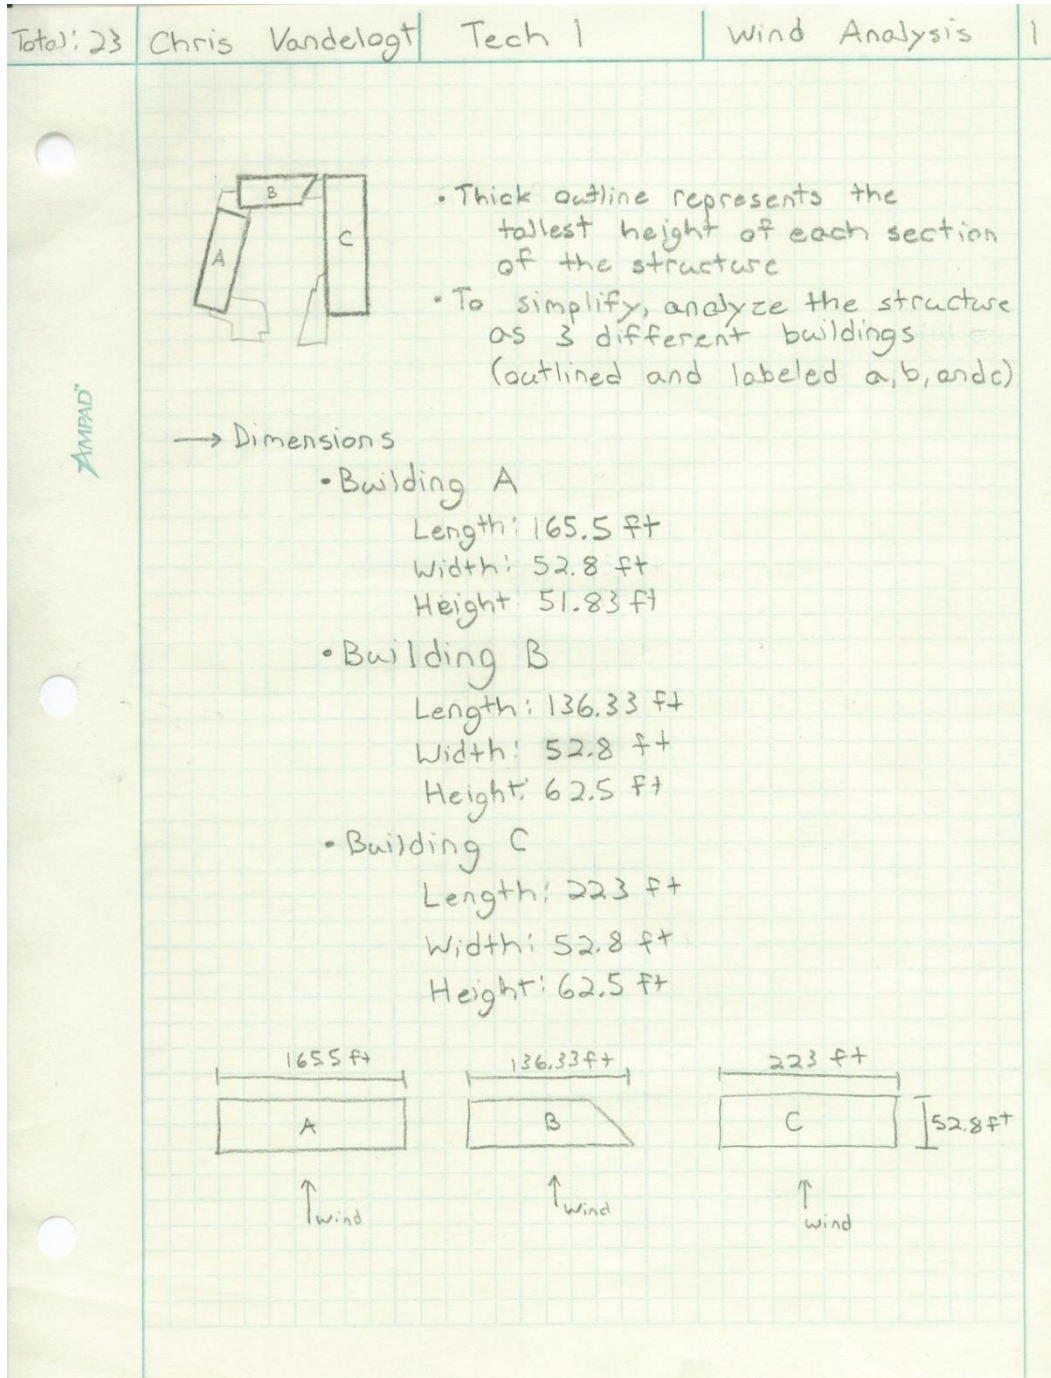 Total: 23
Chris Vandelogt
Tech 1
Wind Analysis
1
B
A
C
• Thick outline represents the
tallest height of each section
of the structure
• To simplify, analyze the structure
as 3 different buildings
(outlined and labeled a, b, and c)
AMPAD™
→ Dimensions
• Building A
Length: 165.5 ft
Width: 52.8 ft
Height 51.83 ft
• Building B
Length: 136.33 ft
Width: 52.8 ft
Height: 62.5 ft
• Building C
Length: 223 ft
Width: 52.8 ft
Height: 62.5 ft
165.5 ft
136.33 ft
223 ft
A
B
C
52.8 ft
wind
wind
wind